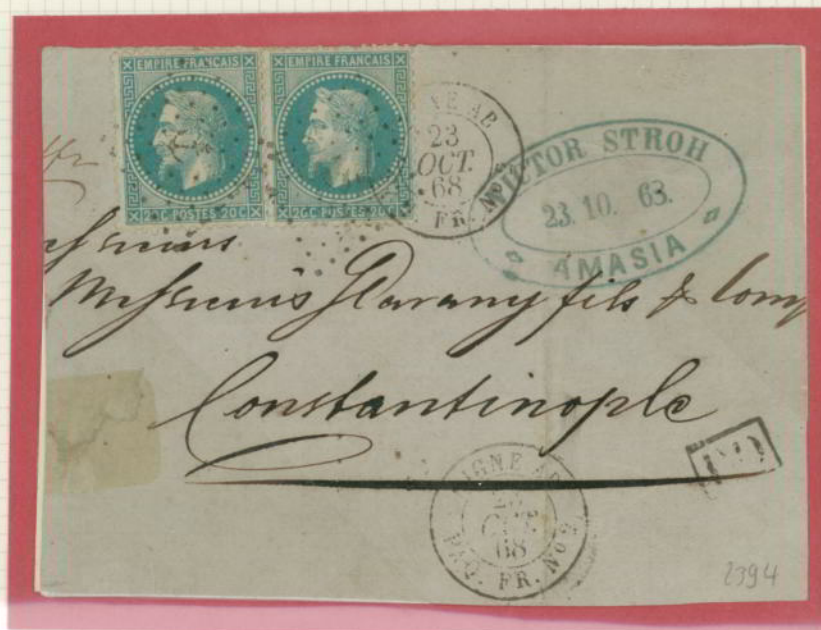 EMPIRE FRANÇAIS
20C POSTES 20C
EMPIRE FRANÇAIS
20C POSTES 20C
LIGNE AB
23
OCT.
68
FR. No 5
VICTOR STROH
23. 10. 68.
AMASIA
Messieurs
Messieurs fils & Comp
Constantinople
PD
LIGNE AB
OCT.
68
PAQ. FR. No 5
2394